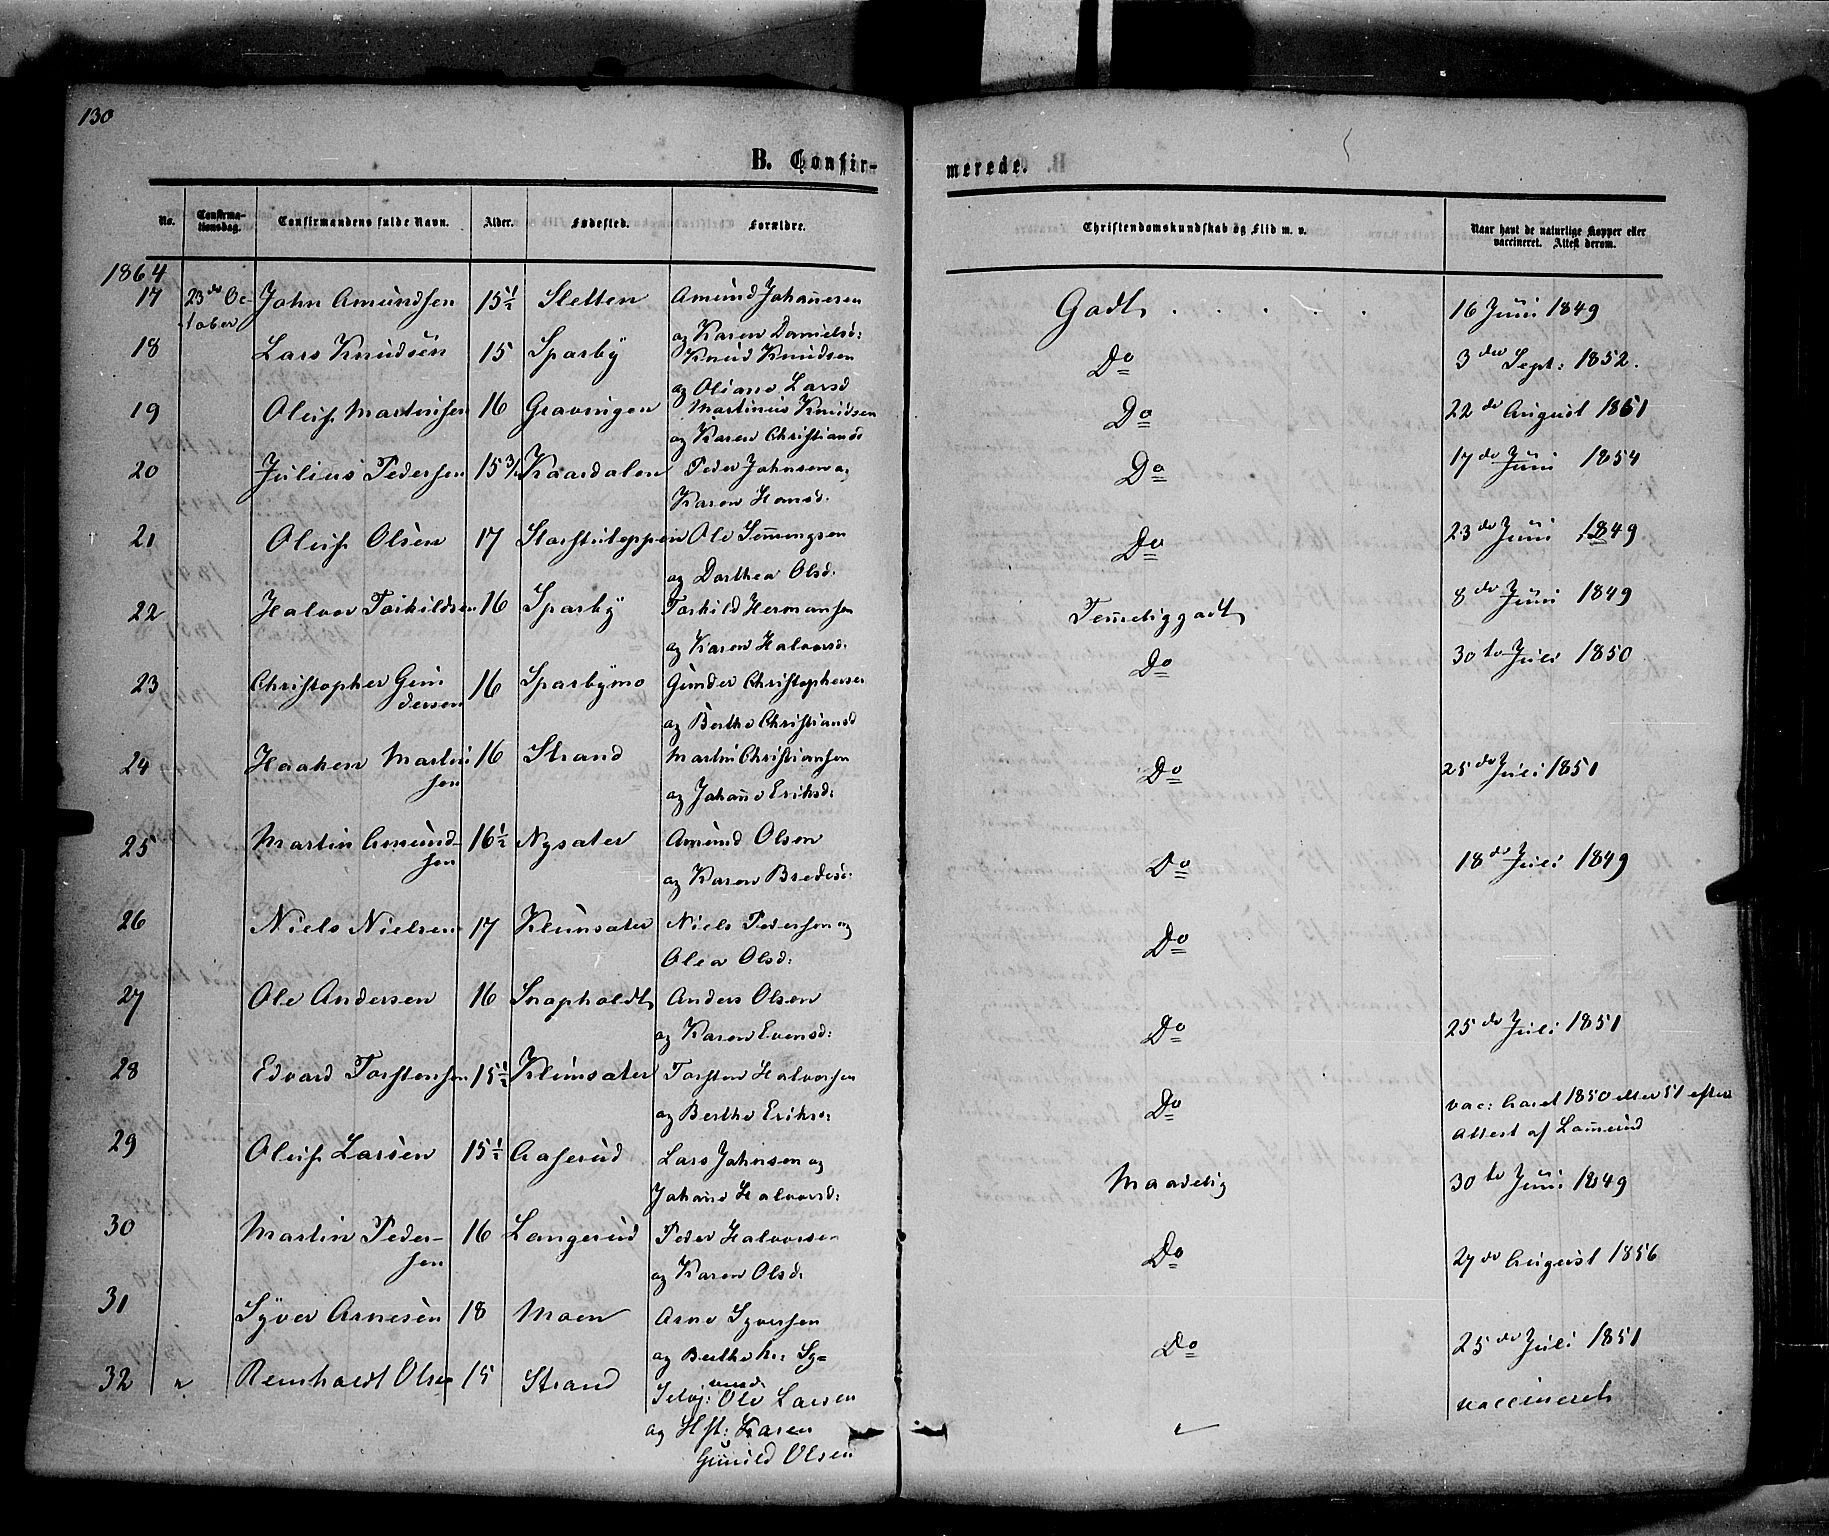 130
B. Confir-
merede.
No. Confirma-tionsdag. Confirmandens fulde Navn. Alder. Fødested. Forældre. Christendomskundskab og Flid m. v. Naar havt de naturlige Kopper eller vaccineret. Attest derom.
1864
17 23de Oc- John Amundsen 15½ Sletten Amund Johannesen Godt . . . . . 16 Juni 1849
tober og Karen Danielsd:
18 Lars Knudsen 15 Sparby Knud Knudsen Do 3die Sept: 1852.
og Oliane Larsd
19 Oluf Martinsen 16 Gravingen Martinus Knudsen Do 22de August 1851
og Karen Christiansd
20 Julius Pedersen 15¾ Kaardalen Peder Johnsen og Do 17de Juni 1854
Karen Hansd:
21 Oluf Olsen 17 Ole Do 23de Juni 1849
og Dorthea Olsd:
22 Halvor Torkildsen 16 Sparby Torkild Hermansen Temmelig godt 8de Juni 1849
og Karen Halvorsd:
23 Christopher Gun 16 Sparbymo Gunder Christophersen Do 30te Juli 1850
dersen og Berthe Christiansd
24 Haaken Martin 16 Strand Martin Christiansen Do 25de Juli 1851
sen og Johanne Eriksd:
25 Martin Amund- 16½ Nysater Amund Olsen Do 18de Juli 1849
sen og Karen Bredesd:
26 Niels Nielsen 17 Klunsater Niels Pedersen og Do
Olea Olsd:
27 Ole Andersen 16 Snapholdt Anders Olsen Do 25de Juli 1851
og Karen Evensd:
28 Edvard Torstensen 15½ Klunsater Torsten Halvorsen Do vac: Aaret 1850 eller 51 efter
og Berthe Eriksd: Attest af
29 Oluf Larsen 15½ Aaserud Lars Johnsen og Maadelig 30te Juni 1849
Johanne Halvorsd:
30 Martin Peder- 16 Langerud Peder Halvorsen Do 27de August 1856
sen og Karen Olsd:
31 Syver Arnesen 18 Moen Arne Syversen Do 25de Juli 1851
og Berthe M: Sy=
versd
32 " Reinhardt Olsen 15 Strand Selvej: Ole Larsen vaccineret
og Hst: Karen
Gunild Olsen